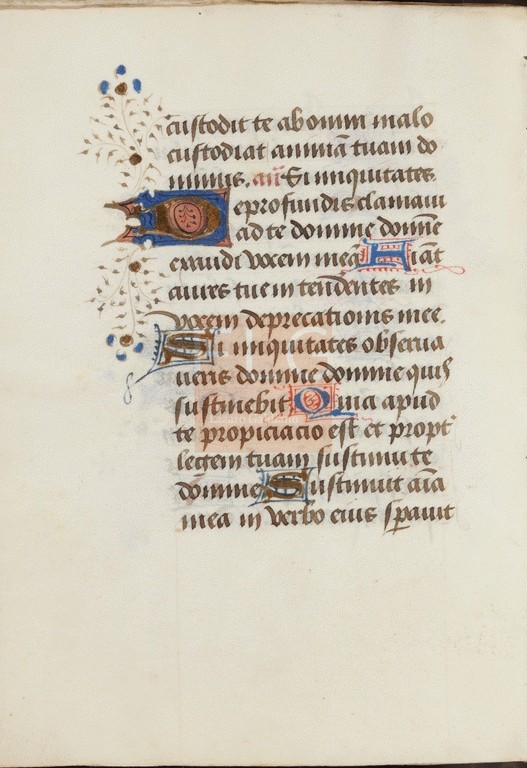 custodit te ab omni malo
custodiat animā tuam do
minus. añ Si iniquitates.
De profundis clamaui
ad te domine domīe
exaudi vocem meā Fiāt
aures tue in tendentes in
vocem deprecationis mee.
Si iniquitates obserua
ueris domine domine quis
sustinebit Quia apud
te propiciacio est et propt᷑
legem tuam sustinui te
domine Sustinuit aīa
mea in verbo eius sꝑauit